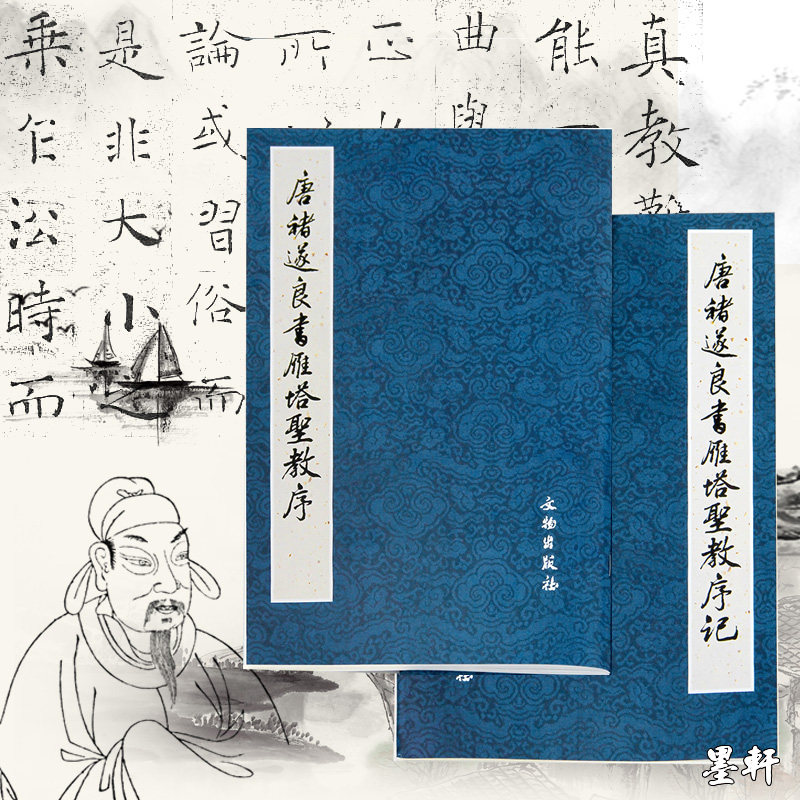 真教難
能一
曲學
正
所
論或習俗而
是非大小之
乘乍沿時而
唐褚遂良书雁塔聖教序记
唐褚遂良书雁塔聖教序
文物出版社
社
墨軒